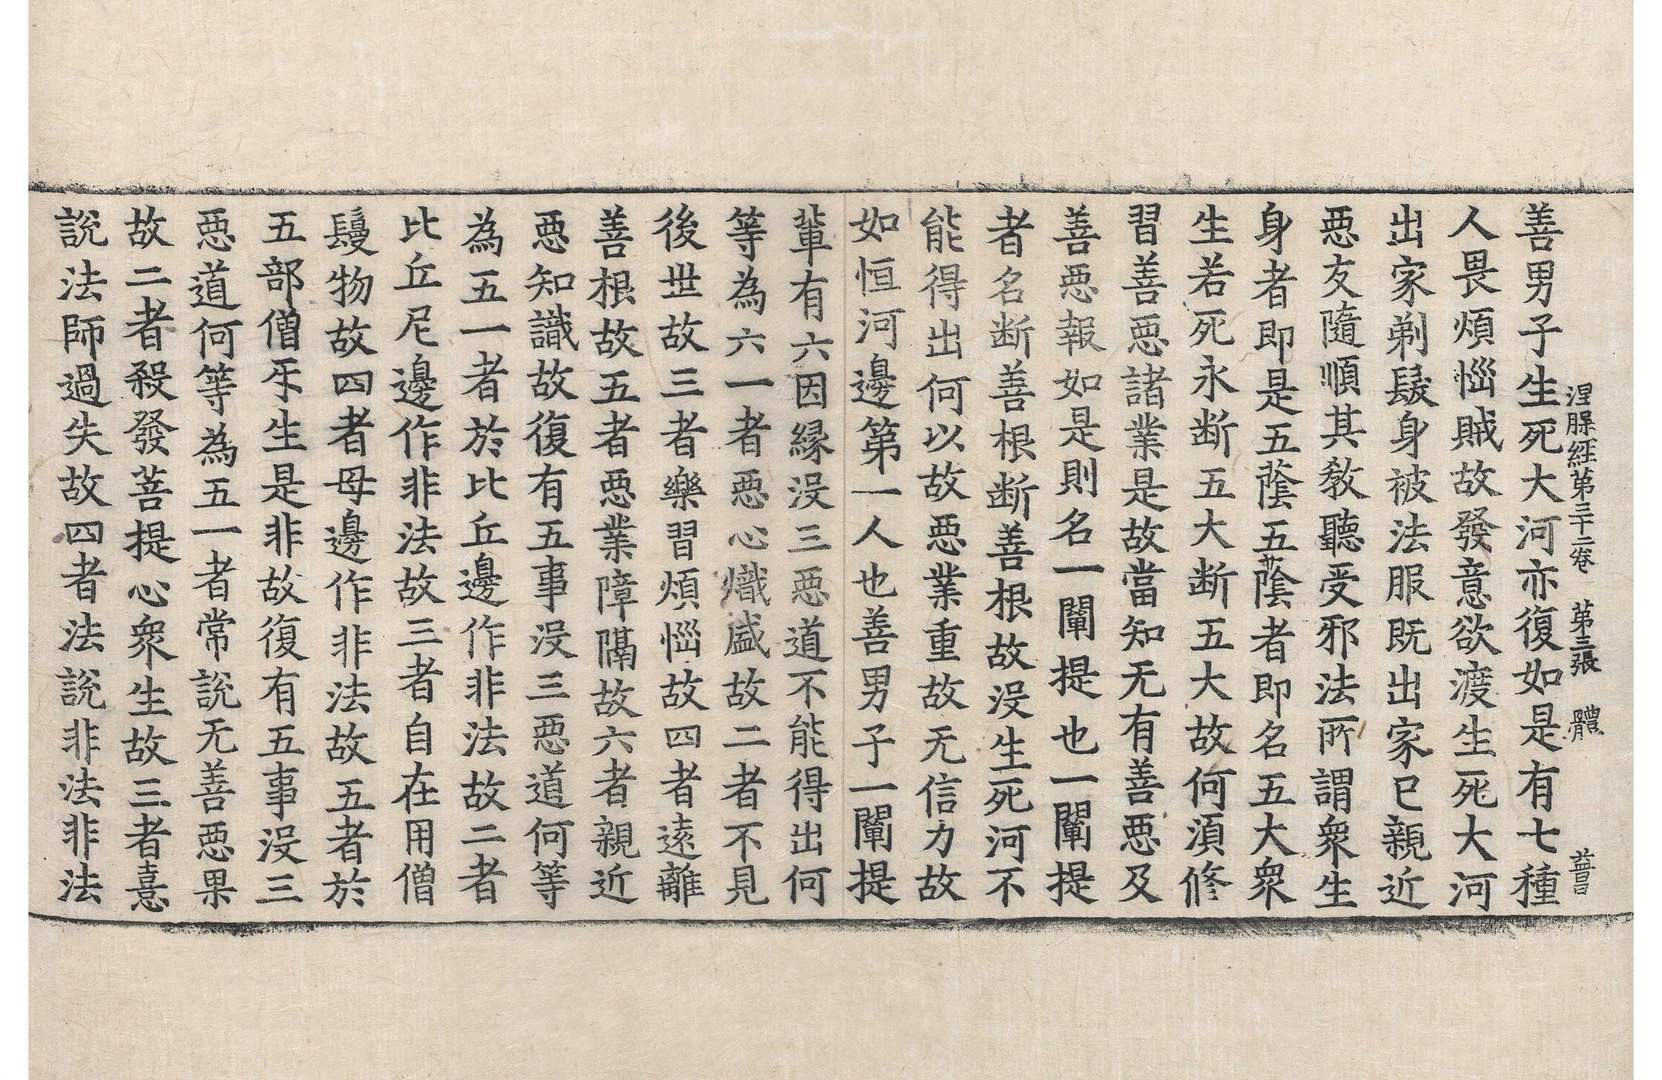 涅槃経第三十二卷　第三張　體　普言
善男子生死大河亦復如是有七種
人畏煩惱賊故發意欲渡生死大河
出家剃髮身被法服既出家已親近
惡友隨順其教聽受邪法所謂衆生
身者即是五蔭五蔭者即名五大衆
生若死永断五大断五大故何湏修
習善惡諸業是故當知无有善惡及
善惡報如是則名一闡提也一闡提
者名断善根断善根故没生死河不
能得出何以故惡業重故无信力故
如恒河邊第一人也善男子一闡提
輩有六因縁没三惡道不能得出何
等為六一者惡心熾盛故二者不見
後世故三者樂習煩惱故四者遠離
善根故五者惡業障隔故六者親近
惡知識故復有五事没三惡道何等
為五一者於比丘邊作非法故二者
比丘尼邊作非法故三者自在用僧
鬘物故四者母邊作非法故五者於
五部僧牙生是非故復有五事没三
惡道何等為五一者常說无善惡果
故二者殺發菩提心衆生故三者憙
說法師過失故四者法說非法非法